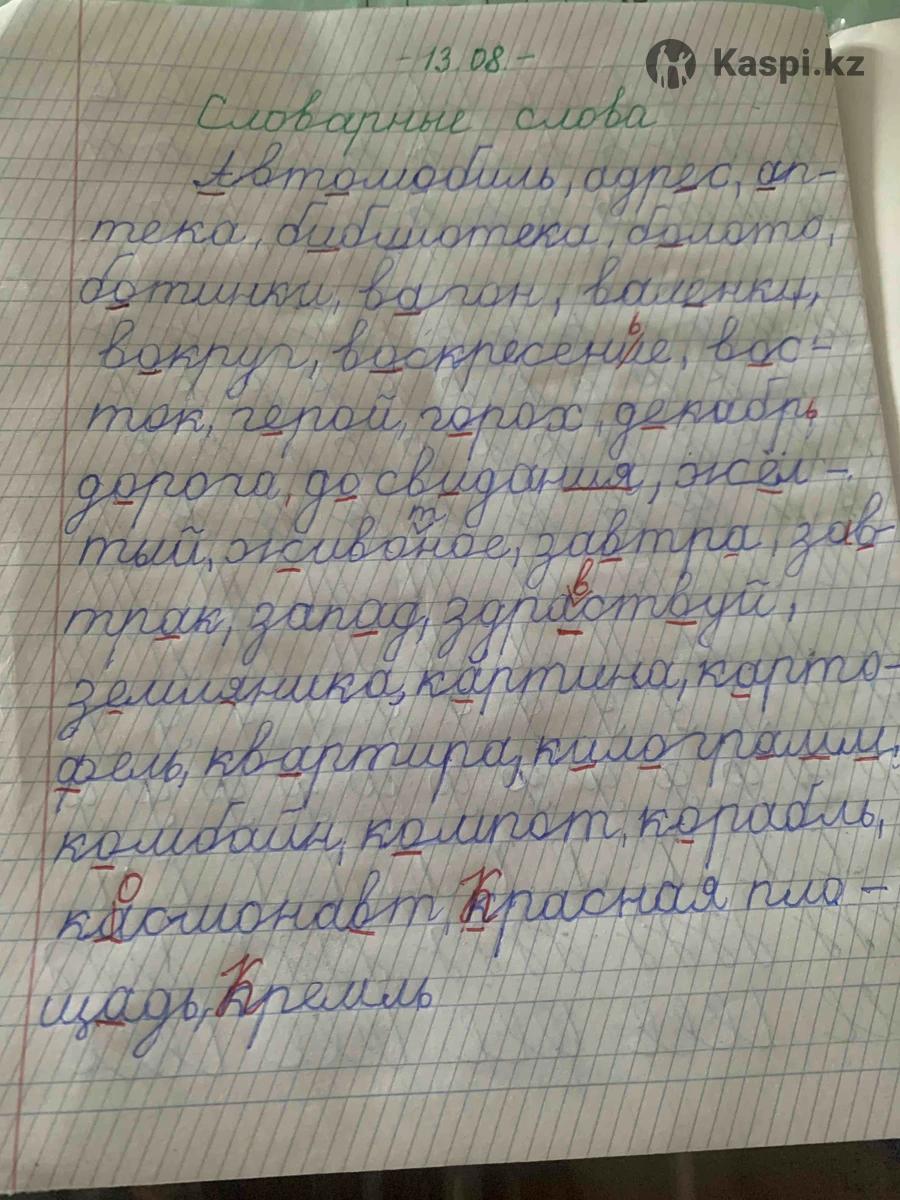 -13.08.-
Kaspi.kz
Словарные слова
Автомобиль, адрес, ап-
тека, библиотека, болото,
ботинки, вагон, валенки,
вокруг, воскресенье, вос-
ток, герой, горох, декабрь
дорога, до свидания, жёл-
тый, живо
т
ное, завтра, зав-
трак, запад, здра
в
ствуй,
земляника, картина, карто-
фель, квартира, килограмм,
комбайн, компот, корабль,
космонавт, Красная пло-
щадь, Кремль